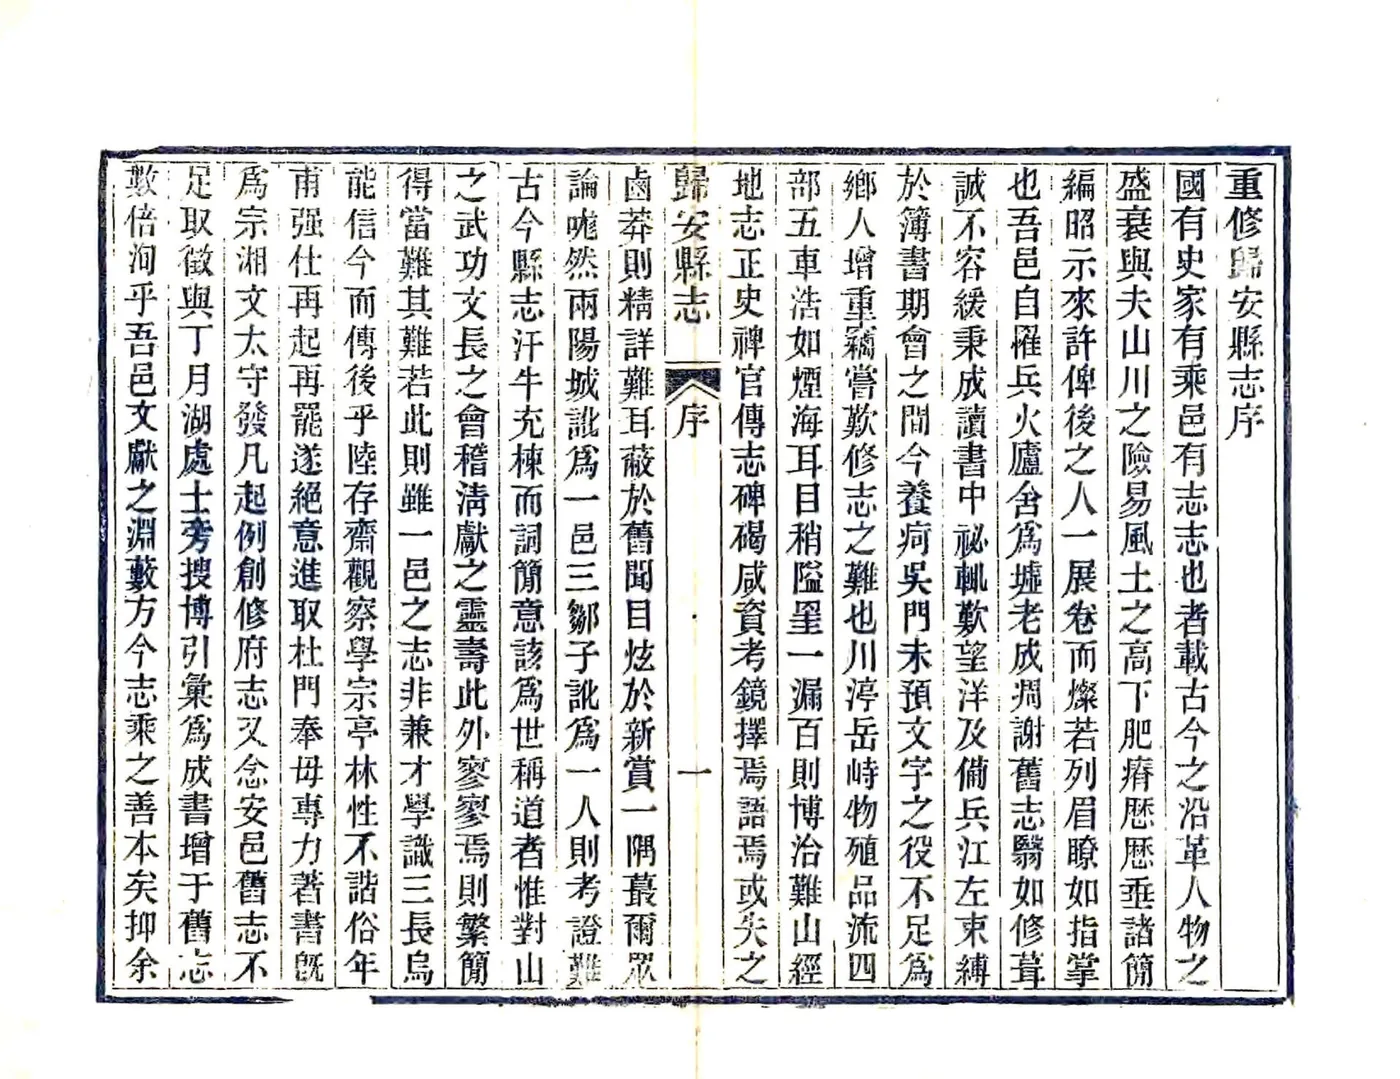 重修歸安縣志序
國有史家有乘邑有志志也者載古今之沿革人物之
盛衰與夫山川之險易風土之高下肥瘠歷歷垂諸簡
編昭示來許俾後之人一展卷而燦若列眉瞭如指掌
也吾邑自罹兵火廬舍爲墟老成凋謝舊志翳如修葺
誠不容緩秉成讀書中祕輒歎望洋及備兵江左束縛
於簿書期會之間今養疴吳門未預文字之役不足爲
鄉人增重竊嘗歎修志之難也川渟岳峙物殖品流四
部五車浩如煙海耳目稍隘罣一漏百則博洽難山經
地志正史稗官傳志碑碣咸資考鏡擇焉語焉或失之
歸安縣志 序 一
鹵莽則精詳難耳蔽於舊聞目炫於新賞一隅蕞爾眾
論嘵然兩陽城訛爲一邑三鄒子訛爲一人則考證難
古今縣志汗牛充棟而詞簡意該爲世稱道者惟對山
之武功文長之會稽淸獻之靈壽此外寥寥焉則繁簡
得當難其難若此則雖一邑之志非兼才學識三長烏
能信今而傳後乎陸存齋觀察學宗亭林性不諧俗年
甫强仕再起再罷遂絕意進取杜門奉母專力著書旣
爲宗湘文太守發凡起例創修府志又念安邑舊志不
足取徵與丁月湖處士旁搜博引彙爲成書增于舊志
數倍洵乎吾邑文獻之淵藪方今志乘之善本矣抑余